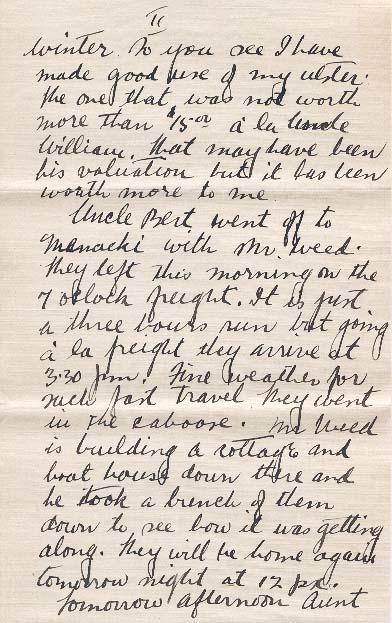 11
winter. So you see I have
made good use of my ulster.
The one that was not worth
more than $15.00 à la Uncle
William. That may have been
his valuation but it has been
worth more to me
Uncle Bert went off to
with Mr. Weed.
They left this morning on the
7 oclock freight. It is just
a three hours run but going
à la freight they arrive at
3.30 p.m. Fine weather for
such fast travel They went
in the caboose. Mr Weed
is building a cottage and
boat house down there and
he took a bunch of them
down to see how it was getting
along. They will be home again
tomorrow night at 12 p.m.
Tomorrow afternoon Aunt